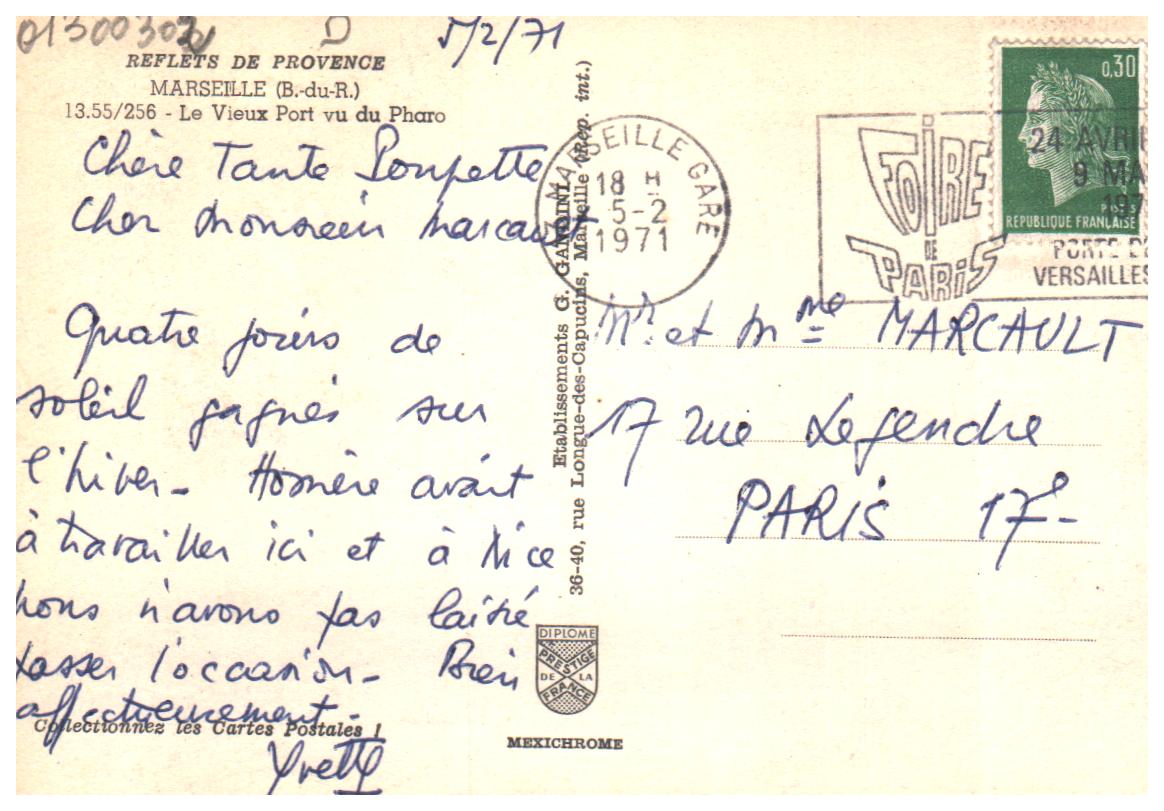 01300302
D
5/2/71
REFLETS DE PROVENCE
MARSEILLE (B.-du-R.)
13.55/256 - Le Vieux Port vu du Pharo
Chère Tante Poupette
Cher Monsieur Marcault
Quatre jours de
soleil gagnés sur
l'hiver - Homère avait
à travailler ici et à Nice
nous n'avons pas laissé
passer l'occasion - Bien
affectueusement -
Yvette
Collectionnez les Cartes Postales !
Etablissements G. GANDINI
36-40, rue Longue-des-Capucins, Marseille (Rep. int.)
DIPLOME
PRESTIGE
DE LA
FRANCE
MEXICHROME
MARSEILLE GARE
18 H
5-2
1971
FOIRE
DE
PARIS
24 AVRIL
9 MA
197
PORTE DE
VERSAILLES
0,30
POSTES
REPUBLIQUE FRANÇAISE
Mr. et Mme MARCAULT
17 rue Legendre
PARIS 17e -